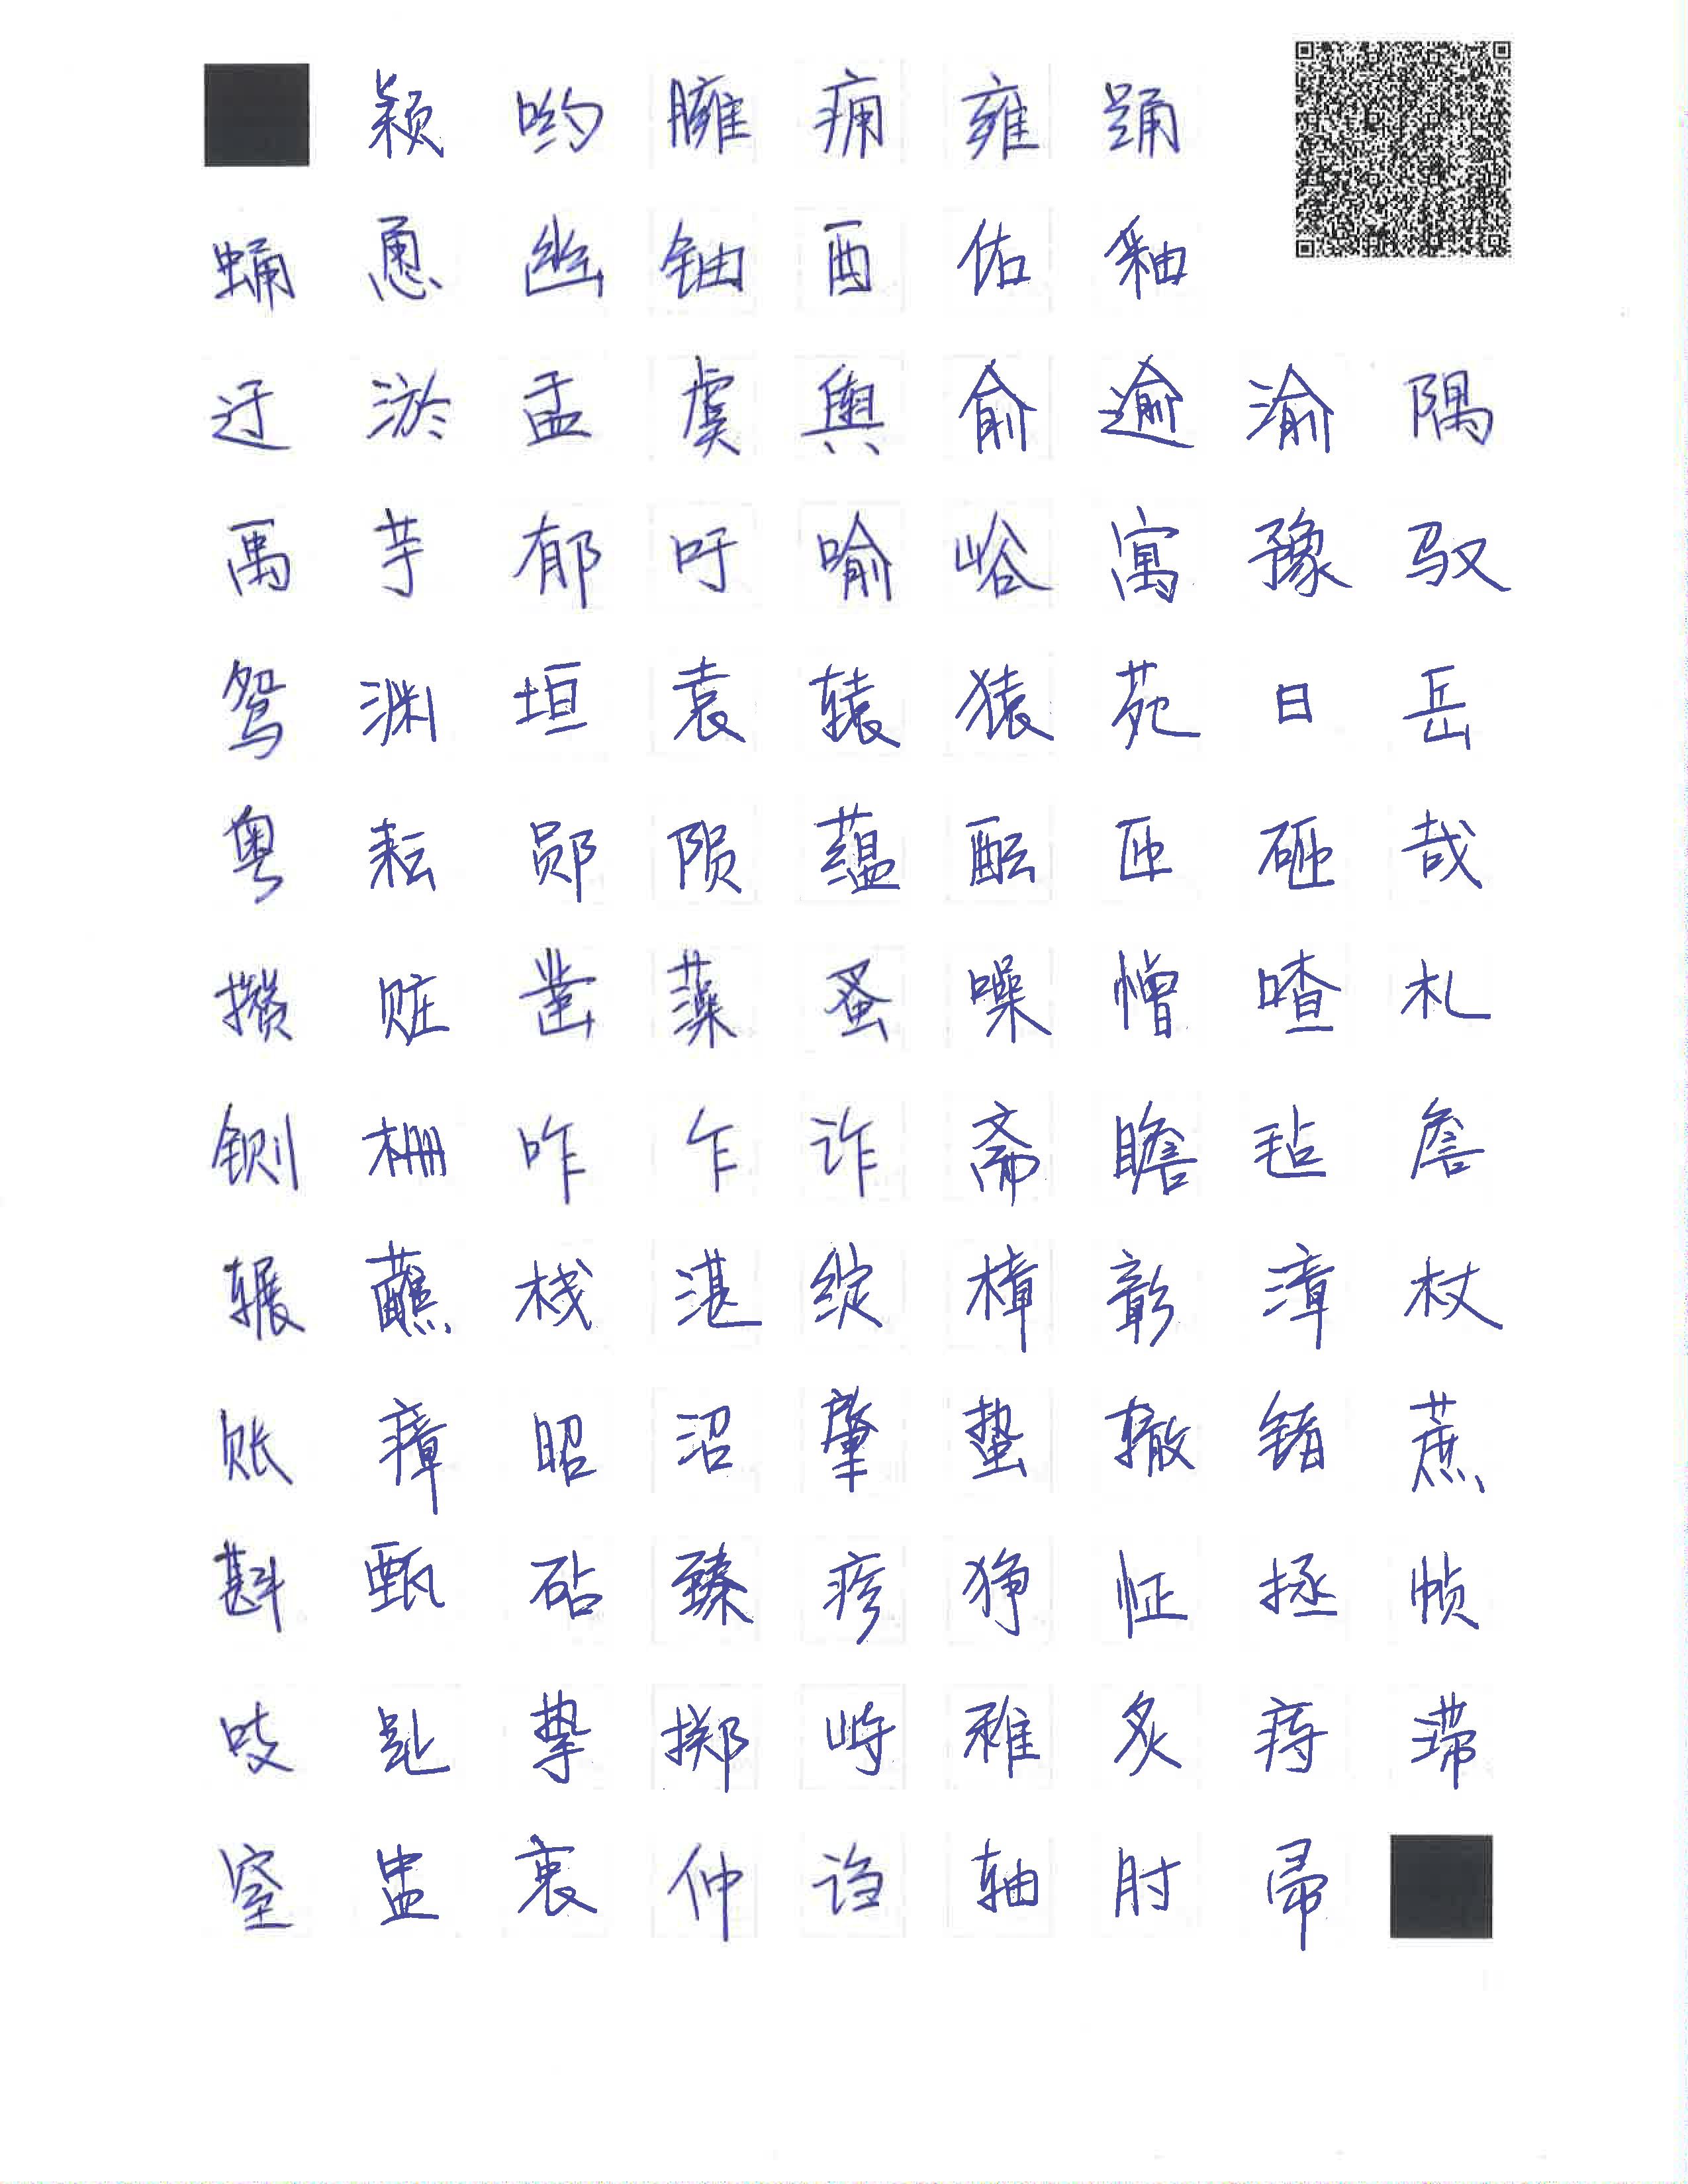 颖 哟 臃 痈 雍 踊
蛹 恿 幽 铀 酉 佑 釉
迂 淤 盂 虞 舆 俞 逾 渝 隅
禹 芋 郁 吁 喻 峪 寓 豫 驭
鸳 渊 垣 袁 辕 猿 苑 曰 岳
粤 耘 郧 陨 蕴 酝 匝 砸 哉
攒 赃 凿 藻 蚤 噪 憎 喳 札
铡 栅 咋 乍 诈 斋 瞻 毡 詹
辗 蘸 栈 湛 绽 樟 彰 漳 杖
账 瘴 昭 沼 肇 蛰 辙 锗 蔗
斟 甄 砧 臻 疹 狰 怔 拯 帧
吱 趾 挚 掷 峙 稚 炙 痔 滞
窒 盅 衷 仲 诌 轴 肘 帚